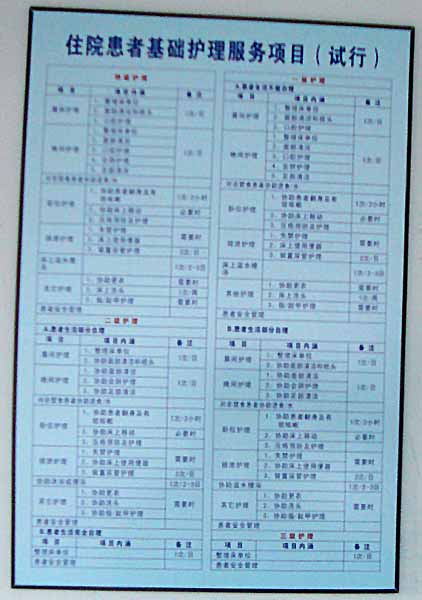 住院患者基础护理服务项目（试行）
特级护理
项目 项目内涵 备注
晨间护理
1、整理床单位
2、面部清洁和梳头
3、口腔护理
1次/日
晚间护理
1、整理床单位
2、面部清洁
3、口腔护理
4、会阴护理
5、足部清洁
1次/日
对非禁食患者协助进食/水
卧位护理
1、协助患者翻身及有效咳嗽
1次/2小时
2、协助床上移动
必要时
3、压疮预防及护理
排泄护理
1、失禁护理
2、床上使用便器
需要时
3、留置尿管护理
2次/日
床上温水擦浴
1次/2-3日
其他护理
1、协助更衣
需要时
2、床上洗头
1次/周
3、指/趾甲护理
需要时
患者安全管理
一级护理
A.患者生活不能自理
项目 项目内涵 备注
晨间护理
1、整理床单位
2、面部清洁和梳头
3、口腔护理
1次/日
晚间护理
1、整理床单位
2、面部清洁
3、口腔护理
4、会阴护理
5、足部清洁
1次/日
对非禁食患者协助进食/水
卧位护理
1、协助患者翻身及有效咳嗽
1次/2小时
2、协助床上移动
必要时
3、压疮预防及护理
排泄护理
1、失禁护理
2、床上使用便器
需要时
3、留置尿管护理
2次/日
床上温水擦浴
1次/2-3日
其他护理
1、协助更衣
需要时
2、床上洗头
1次/周
3、指/趾甲护理
需要时
患者安全管理
二级护理
A.患者生活部分自理
项目 项目内涵 备注
晨间护理
1、整理床单位
2、协助面部清洁和梳头
1次/日
晚间护理
1、协助面部清洁
2、协助会阴护理
3、协助足部清洁
1次/日
对非禁食患者协助进食/水
卧位护理
1、协助患者翻身及有效咳嗽
1次/2小时
2、协助床上移动
必要时
3、压疮预防及护理
排泄护理
1、失禁护理
2、协助床上使用便器
需要时
3、留置尿管护理
2次/日
协助沐浴或擦浴
1次/2-3日
其它护理
1、协助更衣
2、协助洗头
3、协助指/趾甲护理
需要时
患者安全管理
B.患者生活完全自理
项目 项目内涵 备注
整理床单位
1次/日
患者安全管理
B.患者生活部分自理
项目 项目内涵 备注
晨间护理
1、整理床单位
2、协助面部清洁和梳头
1次/日
晚间护理
1、协助面部清洁
2、协助会阴护理
3、协助足部清洁
1次/日
对非禁食患者协助进食/水
卧位护理
1、协助患者翻身及有效咳嗽
1次/2小时
2、协助床上移动
必要时
3、压疮预防及护理
排泄护理
1、失禁护理
2、协助床上使用便器
需要时
3、留置尿管护理
2次/日
协助温水擦浴
1次/2-3日
其它护理
1、协助更衣
2、协助洗头
3、协助指/趾甲护理
需要时
患者安全管理
三级护理
项目 项目内涵 备注
整理床单位
1次/日
患者安全管理